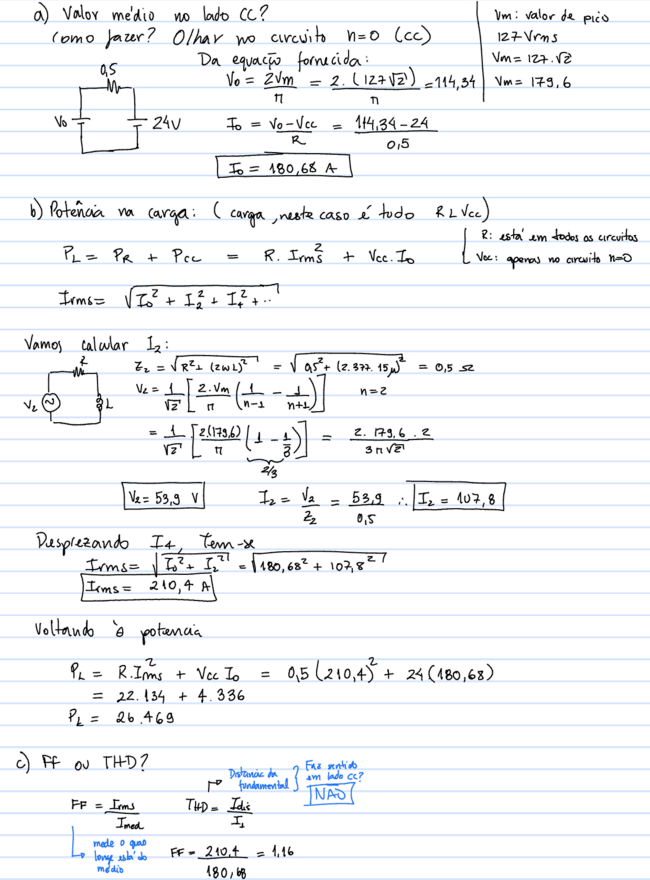 a) Valor médio no lado CC?
Como fazer? Olhar no circuito n=0 (CC)
Vm: valor de pico
127 Vrms
Vm = 127.√2
Vm = 179,6
Da equação fornecida:
0,5
Vo
24V
Vo = 2Vm/π = 2.(127√2)/π = 114,34
Io = (Vo-Vcc)/R = (114,34-24)/0,5
Io = 180,68 A
b) Potência na carga: (carga, neste caso é tudo RLVcc)
R: está em todos os circuitos
Vcc: apenas no circuito n=0
PL = PR + Pcc = R.Irms² + Vcc.Io
Irms = √(Io² + I2² + I4² + ..)
Vamos calcular I2:
R
V2
L
Z2 = √(R²+(2ωL)²) = √(0,5²+(2.377.15μ)²) = 0,5 Ω
V2 = 1/√2 [2.Vm/π (1/(n-1) - 1/(n+1))] n=2
= 1/√2 [2(179,6)/π (1 - 1/3)] = 2.179,6.2/3π√2
2/3
V2 = 53,9 V
I2 = V2/Z2 = 53,9/0,5 ∴ I2 = 107,8
Desprezando I4, tem-se
Irms = √(Io² + I2²) = √(180,68² + 107,8²)
Irms = 210,4 A
Voltando à potencia
PL = R.Irms² + Vcc Io = 0,5(210,4)² + 24(180,68)
= 22.134 + 4.336
PL = 26.469
c) FF ou THD?
Distância da fundamental
Faz sentido em lado CC?
NÃO
FF = Irms/Imed
THD = Idis/I1
mede o quão longe está do médio
FF = 210,4/180,68 = 1,16